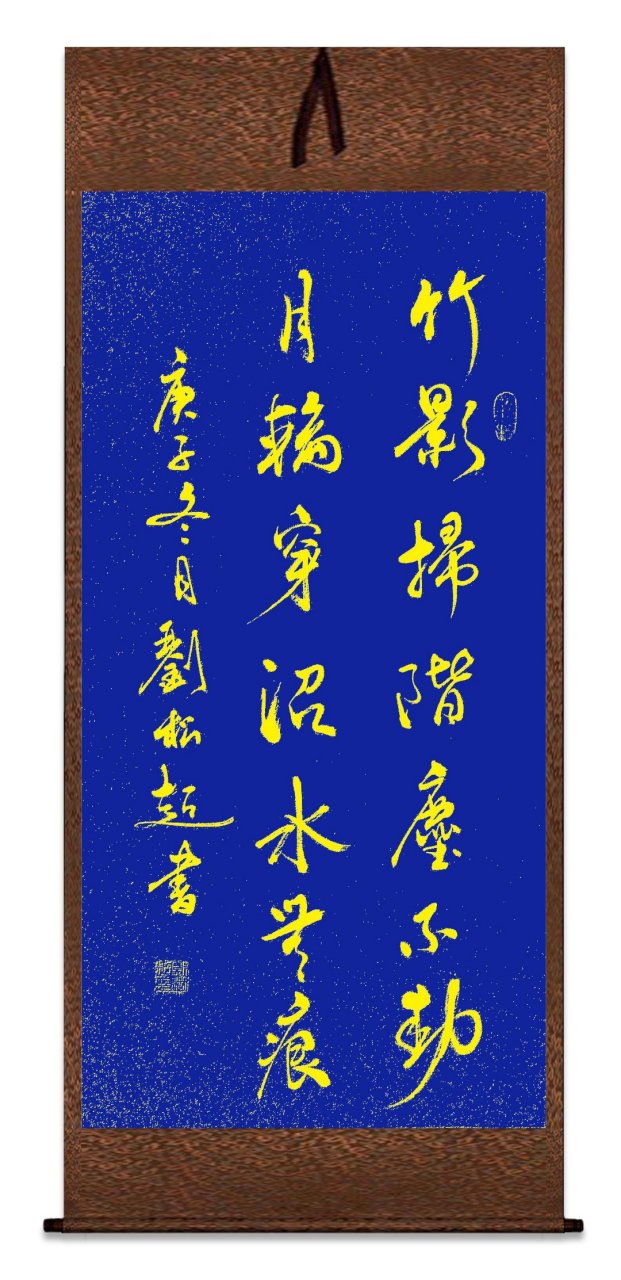 竹影掃階塵不動
月輪穿沼水無痕
庚子冬月劉松超書